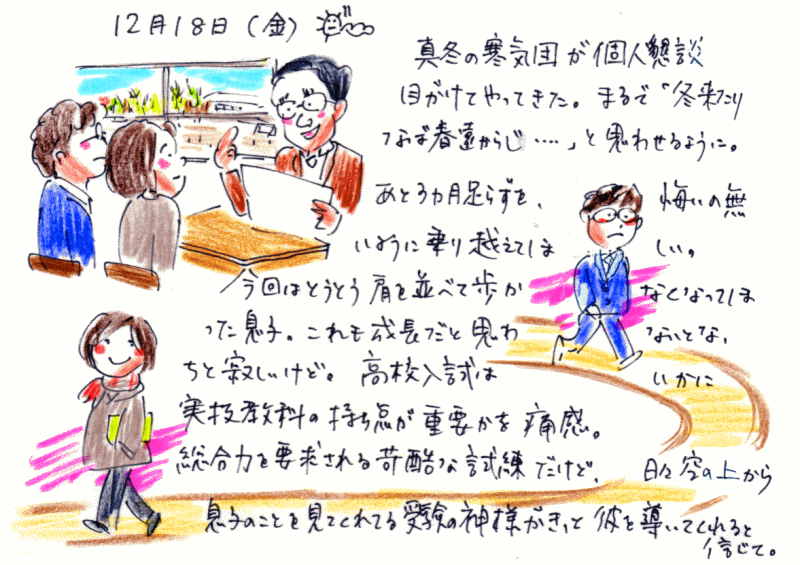 12月18日(金)
真冬の寒気団が個人懇談
目がけてやってきた。まるで「冬来たり
なば春遠からじ‥‥」と思わせるように。
あと3ヵ月足らずを、悔いの無
いように乗り越えてほしい。
今回はとうとう肩を並べて歩かなくなってしま
った息子。これも成長だと思わないとな、
ちと寂しいけど。高校入試はいかに
実技教科の持ち点が重要かを痛感。
総合力を要求される苛酷な試練だけど、日々空の上から
息子のことを見てくれてる受験の神様がきっと彼を導いてくれると
信じて。